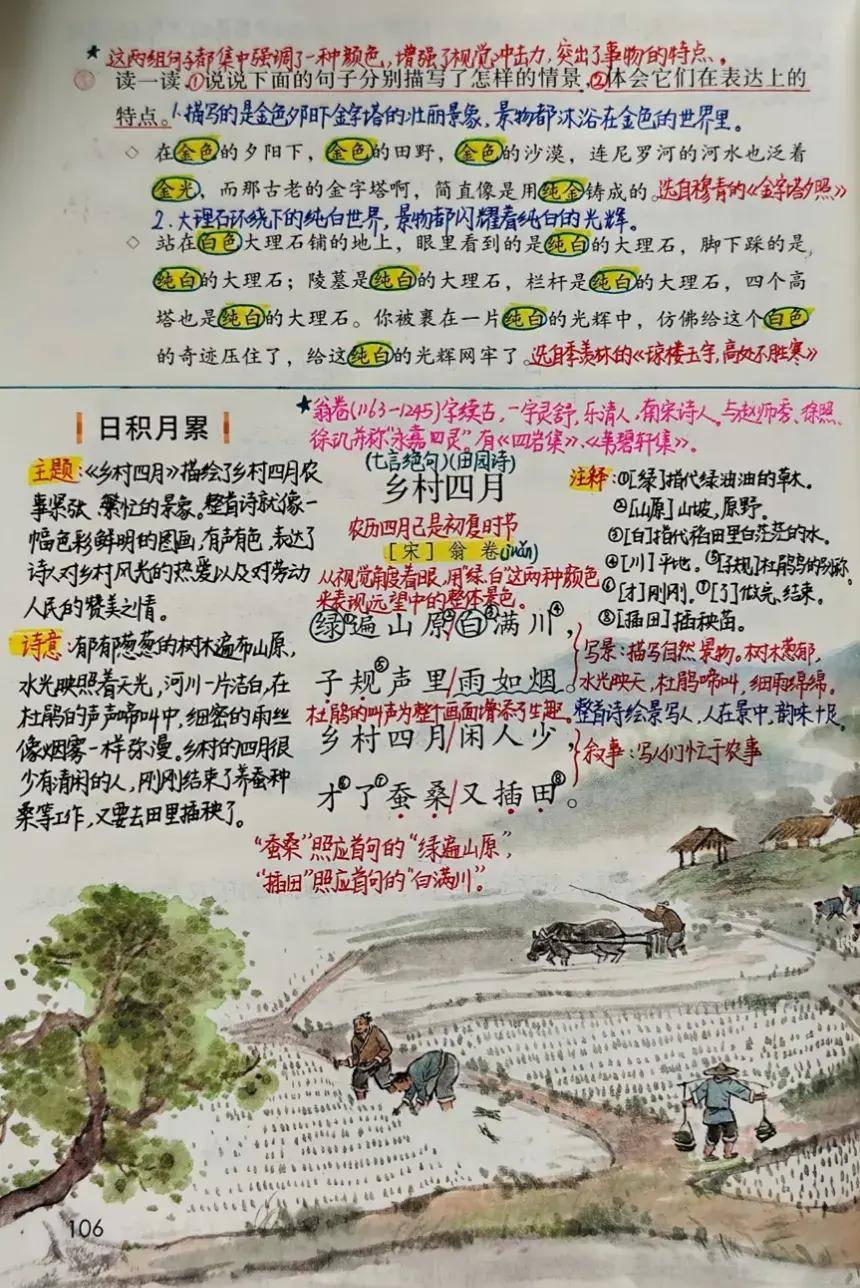 ★这两组句子都集中强调了一种颜色，增强了视觉冲击力，突出了事物的特点。
读一读，①说说下面的句子分别描写了怎样的情景，②体会它们在表达上的
特点。1.描写的是金色夕阳下金字塔的壮丽景象，景物都沐浴在金色的世界里。
◇ 在金色的夕阳下，金色的田野，金色的沙漠，连尼罗河的河水也泛着
金光，而那古老的金字塔啊，简直像是用纯金铸成的。选自穆青的《金字塔夕照》
2.大理石环绕下的纯白世界，景物都闪耀着纯白的光辉。
◇ 站在白色大理石铺的地上，眼里看到的是纯白的大理石，脚下踩的是
纯白的大理石；陵墓是纯白的大理石，栏杆是纯白的大理石，四个高
塔也是纯白的大理石。你被裹在一片纯白的光辉中，仿佛给这个白色
的奇迹压住了，给这纯白的光辉网牢了。选自季羡林的《琼楼玉宇，高处不胜寒》
日积月累
★翁卷(1163-1245)字续古，一字灵舒，乐清人，南宋诗人。与赵师秀、徐照、
徐玑并称“永嘉四灵”。有《四岩集》、《苇碧轩集》。
主题:《乡村四月》描绘了乡村四月农
事紧张、繁忙的景象。整首诗就像一
幅色彩鲜明的图画，有声有色，表达了
诗人对乡村风光的热爱以及对劳动
人民的赞美之情。
诗意:郁郁葱葱的树木遍布山原，
水光映照着天光，河川一片洁白，在
杜鹃的声声啼叫中，细密的雨丝
像烟雾一样弥漫。乡村的四月很
少有清闲的人，刚刚结束了养蚕种
桑等工作，又要去田里插秧了。
(七言绝句)(田园诗)
乡村四月
农历四月已是初夏时节
[宋] 翁 卷(juǎn)
从视觉角度着眼，用“绿、白”这两种颜色
来表现远望中的整体景色。
绿①遍山原②/白③满川④，
子规⑤声里/雨如烟。
杜鹃的叫声为整个画面增添了生趣。
乡村四月/闲人少，
才⑥了⑦蚕桑/又插田⑧。
“蚕桑”照应首句的“绿遍山原”，
“插田”照应首句的“白满川”。
注释:①[绿]指代绿油油的草木。
②[山原]山坡，原野。
③[白]指代稻田里白茫茫的水。
④[川]平地。⑤[子规]杜鹃鸟的别称。
⑥[才]刚刚。⑦[了]做完，结束。
⑧[插田]插秧苗。
写景:描写自然景物。树木葱郁，
水光映天，杜鹃啼叫，细雨绵绵。
整首诗绘景写人，人在景中，韵味十足。
叙事:写人们忙于农事
106